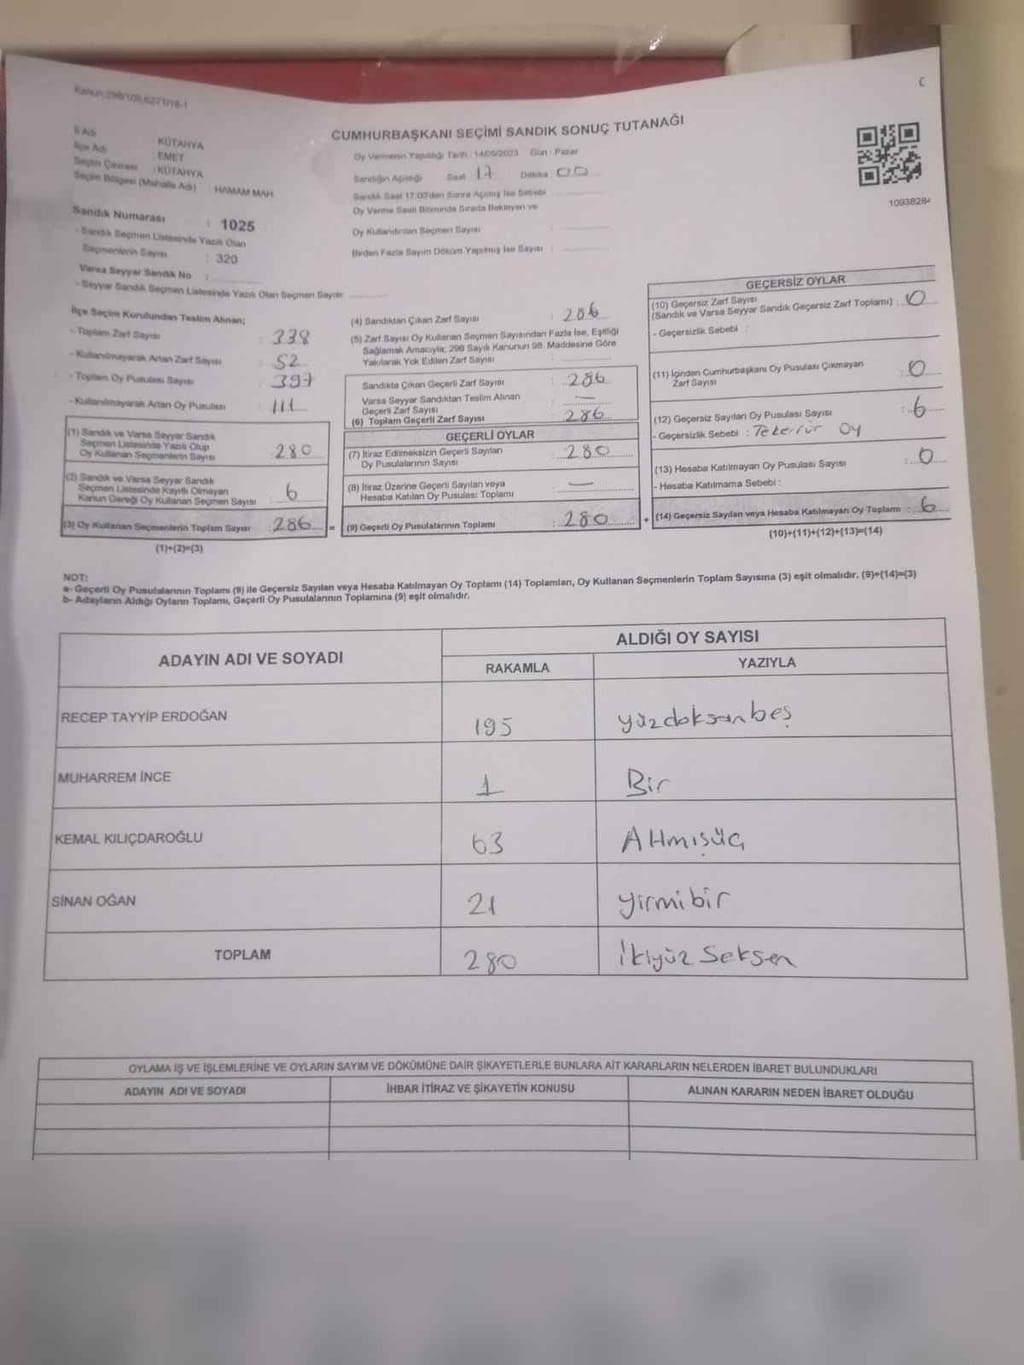 Kanun:298/109,6271/18-1
C
CUMHURBAŞKANI SEÇİMİ SANDIK SONUÇ TUTANAĞI
İl Adı : KÜTAHYA
İlçe Adı : EMET
Seçim Çevresi : KÜTAHYA
Seçim Bölgesi (Mahalle Adı) : HAMAM MAH
Sandık Numarası : 1025
- Sandık Seçmen Listesinde Yazılı Olan
Seçmenlerin Sayısı : 320
Varsa Seyyar Sandık No :
- Seyyar Sandık Seçmen Listesinde Yazılı Olan Seçmen Sayısı:
Oy Vermenin Yapıldığı Tarih : 14/05/2023 Gün : Pazar
Sandığın Açıldığı Saat 17 Dakika 00
Sandık Saat 17:00'den Sonra Açılmış İse Sebebi :
Oy Verme Saati Bitiminde Sırada Bekleyen ve
Oy Kullandırılan Seçmen Sayısı :
Birden Fazla Sayım Döküm Yapılmış İse Sayısı :
1093828
İlçe Seçim Kurulundan Teslim Alınan;
- Toplam Zarf Sayısı : 338
- Kullanılmayarak Artan Zarf Sayısı : 52
- Toplam Oy Pusulası Sayısı : 397
- Kullanılmayarak Artan Oy Pusulası : 111
(1) Sandık ve Varsa Seyyar Sandık
Seçmen Listesinde Yazılı Olup
Oy Kullanan Seçmenlerin Sayısı : 280
(2) Sandık ve Varsa Seyyar Sandık
Seçmen Listesinde Kayıtlı Olmayan
Kanun Gereği Oy Kullanan Seçmen Sayısı : 6
(3) Oy Kullanan Seçmenlerin Toplam Sayısı : 286 =
(1)+(2)=(3)
(4) Sandıktan Çıkan Zarf Sayısı : 286
(5) Zarf Sayısı Oy Kullanan Seçmen Sayısından Fazla İse, Eşitliği
Sağlamak Amacıyla; 298 Sayılı Kanunun 98. Maddesine Göre
Yakılarak Yok Edilen Zarf Sayısı :
Sandıkta Çıkan Geçerli Zarf Sayısı : 286
Varsa Seyyar Sandıktan Teslim Alınan
Geçerli Zarf Sayısı : —
(6) Toplam Geçerli Zarf Sayısı : 286
GEÇERLİ OYLAR
(7) İtiraz Edilmeksizin Geçerli Sayılan
Oy Pusulalarının Sayısı : 280
(8) İtiraz Üzerine Geçerli Sayılan veya
Hesaba Katılan Oy Pusulası Toplamı : —
(9) Geçerli Oy Pusulalarının Toplamı : 280 +
GEÇERSİZ OYLAR
(10) Geçersiz Zarf Sayısı
(Sandık ve Varsa Seyyar Sandık Geçersiz Zarf Toplamı) : 0
- Geçersizlik Sebebi :
(11) İçinden Cumhurbaşkanı Oy Pusulası Çıkmayan
Zarf Sayısı : 0
(12) Geçersiz Sayılan Oy Pusulası Sayısı : 6
- Geçersizlik Sebebi : Tekerrür Oy
(13) Hesaba Katılmayan Oy Pusulası Sayısı : 0
- Hesaba Katılmama Sebebi :
(14) Geçersiz Sayılan veya Hesaba Katılmayan Oy Toplamı : 6
(10)+(11)+(12)+(13)=(14)
NOT:
a- Geçerli Oy Pusulalarının Toplamı (9) ile Geçersiz Sayılan veya Hesaba Katılmayan Oy Toplamı (14) Toplamları, Oy Kullanan Seçmenlerin Toplam Sayısına (3) eşit olmalıdır. (9)+(14)=(3)
b- Adayların Aldığı Oyların Toplamı, Geçerli Oy Pusulalarının Toplamına (9) eşit olmalıdır.
ADAYIN ADI VE SOYADI
ALDIĞI OY SAYISI
RAKAMLA YAZIYLA
RECEP TAYYİP ERDOĞAN 195 yüzdoksanbeş
MUHARREM İNCE 1 Bir
KEMAL KILIÇDAROĞLU 63 Altmışüç
SİNAN OĞAN 21 yirmibir
TOPLAM 280 İkiyüz Seksen
OYLAMA İŞ VE İŞLEMLERİNE VE OYLARIN SAYIM VE DÖKÜMÜNE DAİR ŞİKAYETLERLE BUNLARA AİT KARARLARIN NELERDEN İBARET BULUNDUKLARI
ADAYIN ADI VE SOYADI İHBAR İTİRAZ VE ŞİKAYETİN KONUSU ALINAN KARARIN NEDEN İBARET OLDUĞU